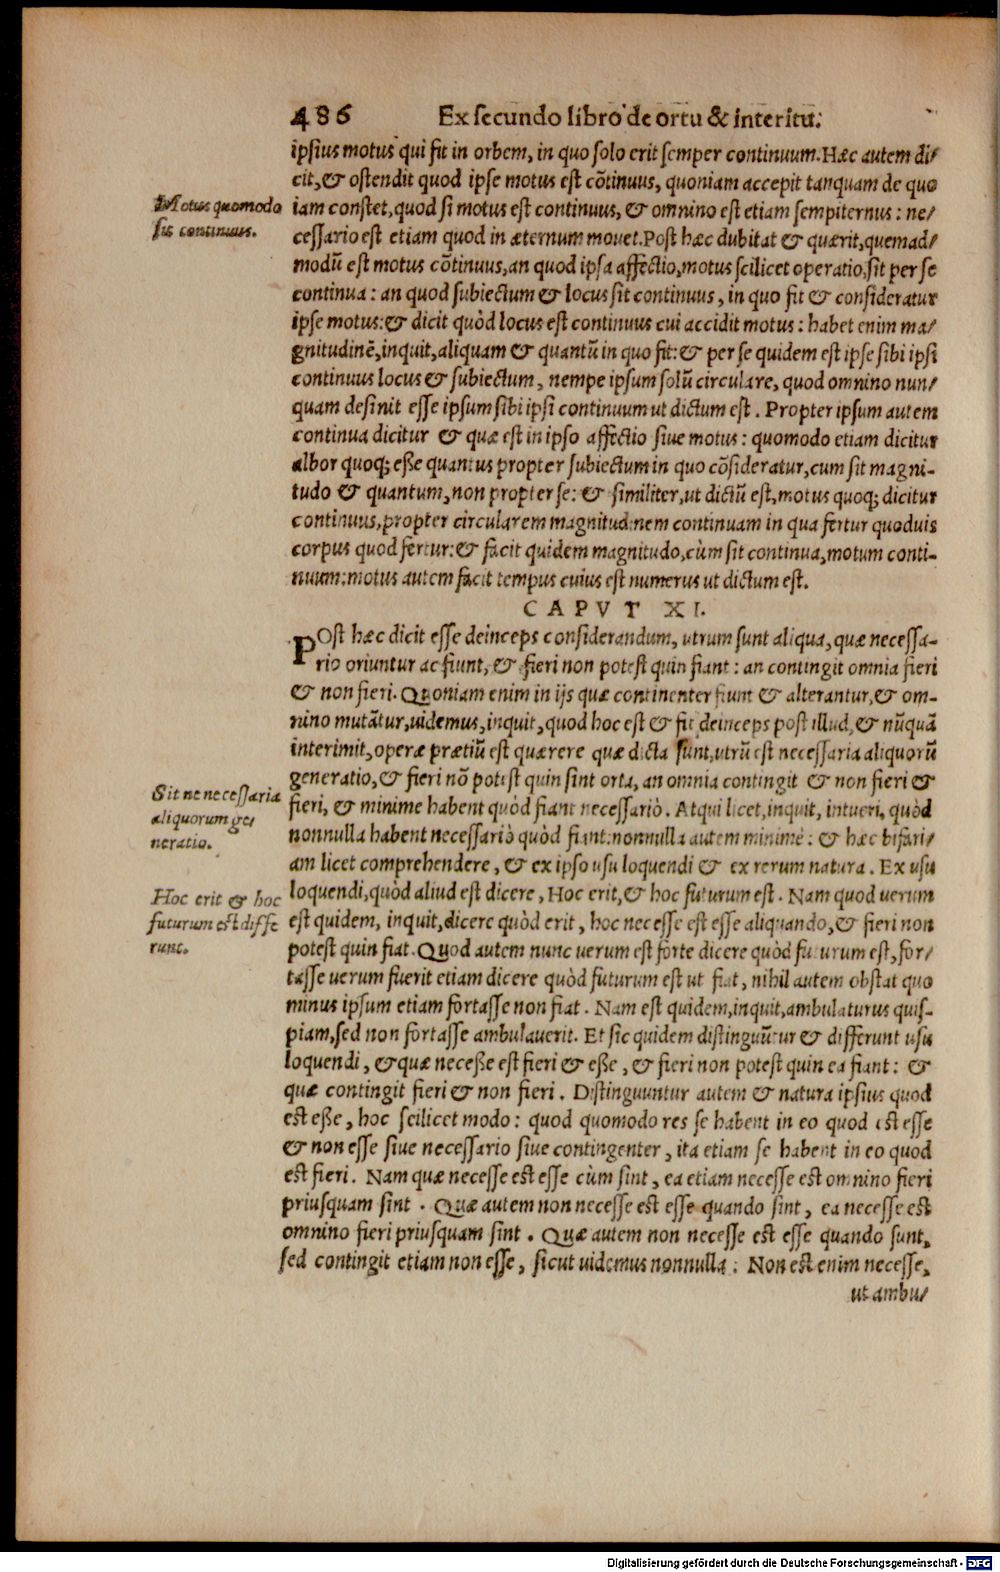 486 Ex secundo libro de ortu & interitu.
ipsius motus qui fit in orbem, in quo solo erit semper continuum. Hæc autem di/
cit, & ostendit quod ipse motus est cōtinuus, quoniam accepit tanquam de quo
Motus quomodo
sit continuus.
iam constet, quod si motus est continuus, & omnino est etiam sempiternus: ne/
cessario est etiam quod in æternum movet. Post hæc dubitat & quærit, quemad/
modū est motus cōtinuus, an quod ipsa affectio, motus scilicet operatio, sit per se
continua: an quod subiectum & locus sit continuus, in quo fit & consideratur
ipse motus: & dicit quòd locus est continuus cui accidit motus: habet enim ma/
gnitudinē, inquit, aliquam & quantū in quo fit: & per se quidem est ipse sibi ipsi
continuus locus & subiectum, nempe ipsum solū circulare, quod omnino nun/
quam desinit esse ipsum sibi ipsi continuum ut dictum est. Propter ipsum autem
continua dicitur & quæ est in ipso affectio sive motus: quomodo etiam dicitur
albor quoq; esse quantus propter subiectum in quo cōsideratur, cum sit magni-
tudo & quantum, non propter se: & similiter, ut dictū est, motus quoq; dicitur
continuus, propter circularem magnitudinem continuam in qua fertur quoduis
corpus quod fertur: & facit quidem magnitudo, cùm sit continua, motum conti-
nuum: motus autem facit tempus cuius est numerus ut dictum est.
CAPVT XI.
POst hæc dicit esse deinceps considerandum, utrum sunt aliqua, quæ necessa-
rio oriuntur ac fiunt, & fieri non potest quin fiant: an contingit omnia fieri
& non fieri. Quoniam enim in ijs quæ continenter fiunt & alterantur, & om-
nino mutātur, videmus, inquit, quod hoc est & fit deinceps post illud, & nūquā
interimit, operæ prætiū est quærere quæ dicta sunt, utrū est necessaria aliquorū
generatio, & fieri nō potest quin sint orta, an omnia contingit & non fieri &
Sit ne necessaria
aliquorum ge/
neratio.
fieri, & minime habent quòd fiant necessariò. Atqui licet, inquit, intueri, quòd
nonnulla habent necessariò quòd fiant: nonnulla autem minimè: & hæc bifari/
am licet comprehendere, & ex ipso usu loquendi & ex rerum natura. Ex usu
Hoc erit & hoc
futurum est diffe
runt.
loquendi, quòd aliud est dicere, Hoc erit, & hoc futurum est. Nam quod verum
est quidem, inquit, dicere quòd erit, hoc necesse est esse aliquando, & fieri non
potest quin fiat. Quod autem nunc verum est forte dicere quòd futurum est, for/
tasse verum fuerit etiam dicere quòd futurum est ut fiat, nihil autem obstat quo
minus ipsum etiam fortasse non fiat. Nam est quidem, inquit, ambulaturus quis-
piam, sed non fortasse ambulaverit. Et sic quidem distinguūtur & differunt usu
loquendi, & quæ necesse est fieri & esse, & fieri non potest quin ea fiant: &
quæ contingit fieri & non fieri. Distinguuntur autem & natura ipsius quod
est esse, hoc scilicet modo: quod quomodo res se habent in eo quod est esse
& non esse sive necessario sive contingenter, ita etiam se habent in eo quod
est fieri. Nam quæ necesse est esse cùm sint, ea etiam necesse est omnino fieri
priusquam sint. Quæ autem non necesse est esse quando sint, ea necesse est
omnino fieri priusquam sint. Quæ autem non necesse est esse quando sunt,
sed contingit etiam non esse, sicut videmus nonnulla: Non est enim necesse,
ut ambu/
Digitalisierung gefördert durch die Deutsche Forschungsgemeinschaft - DFG